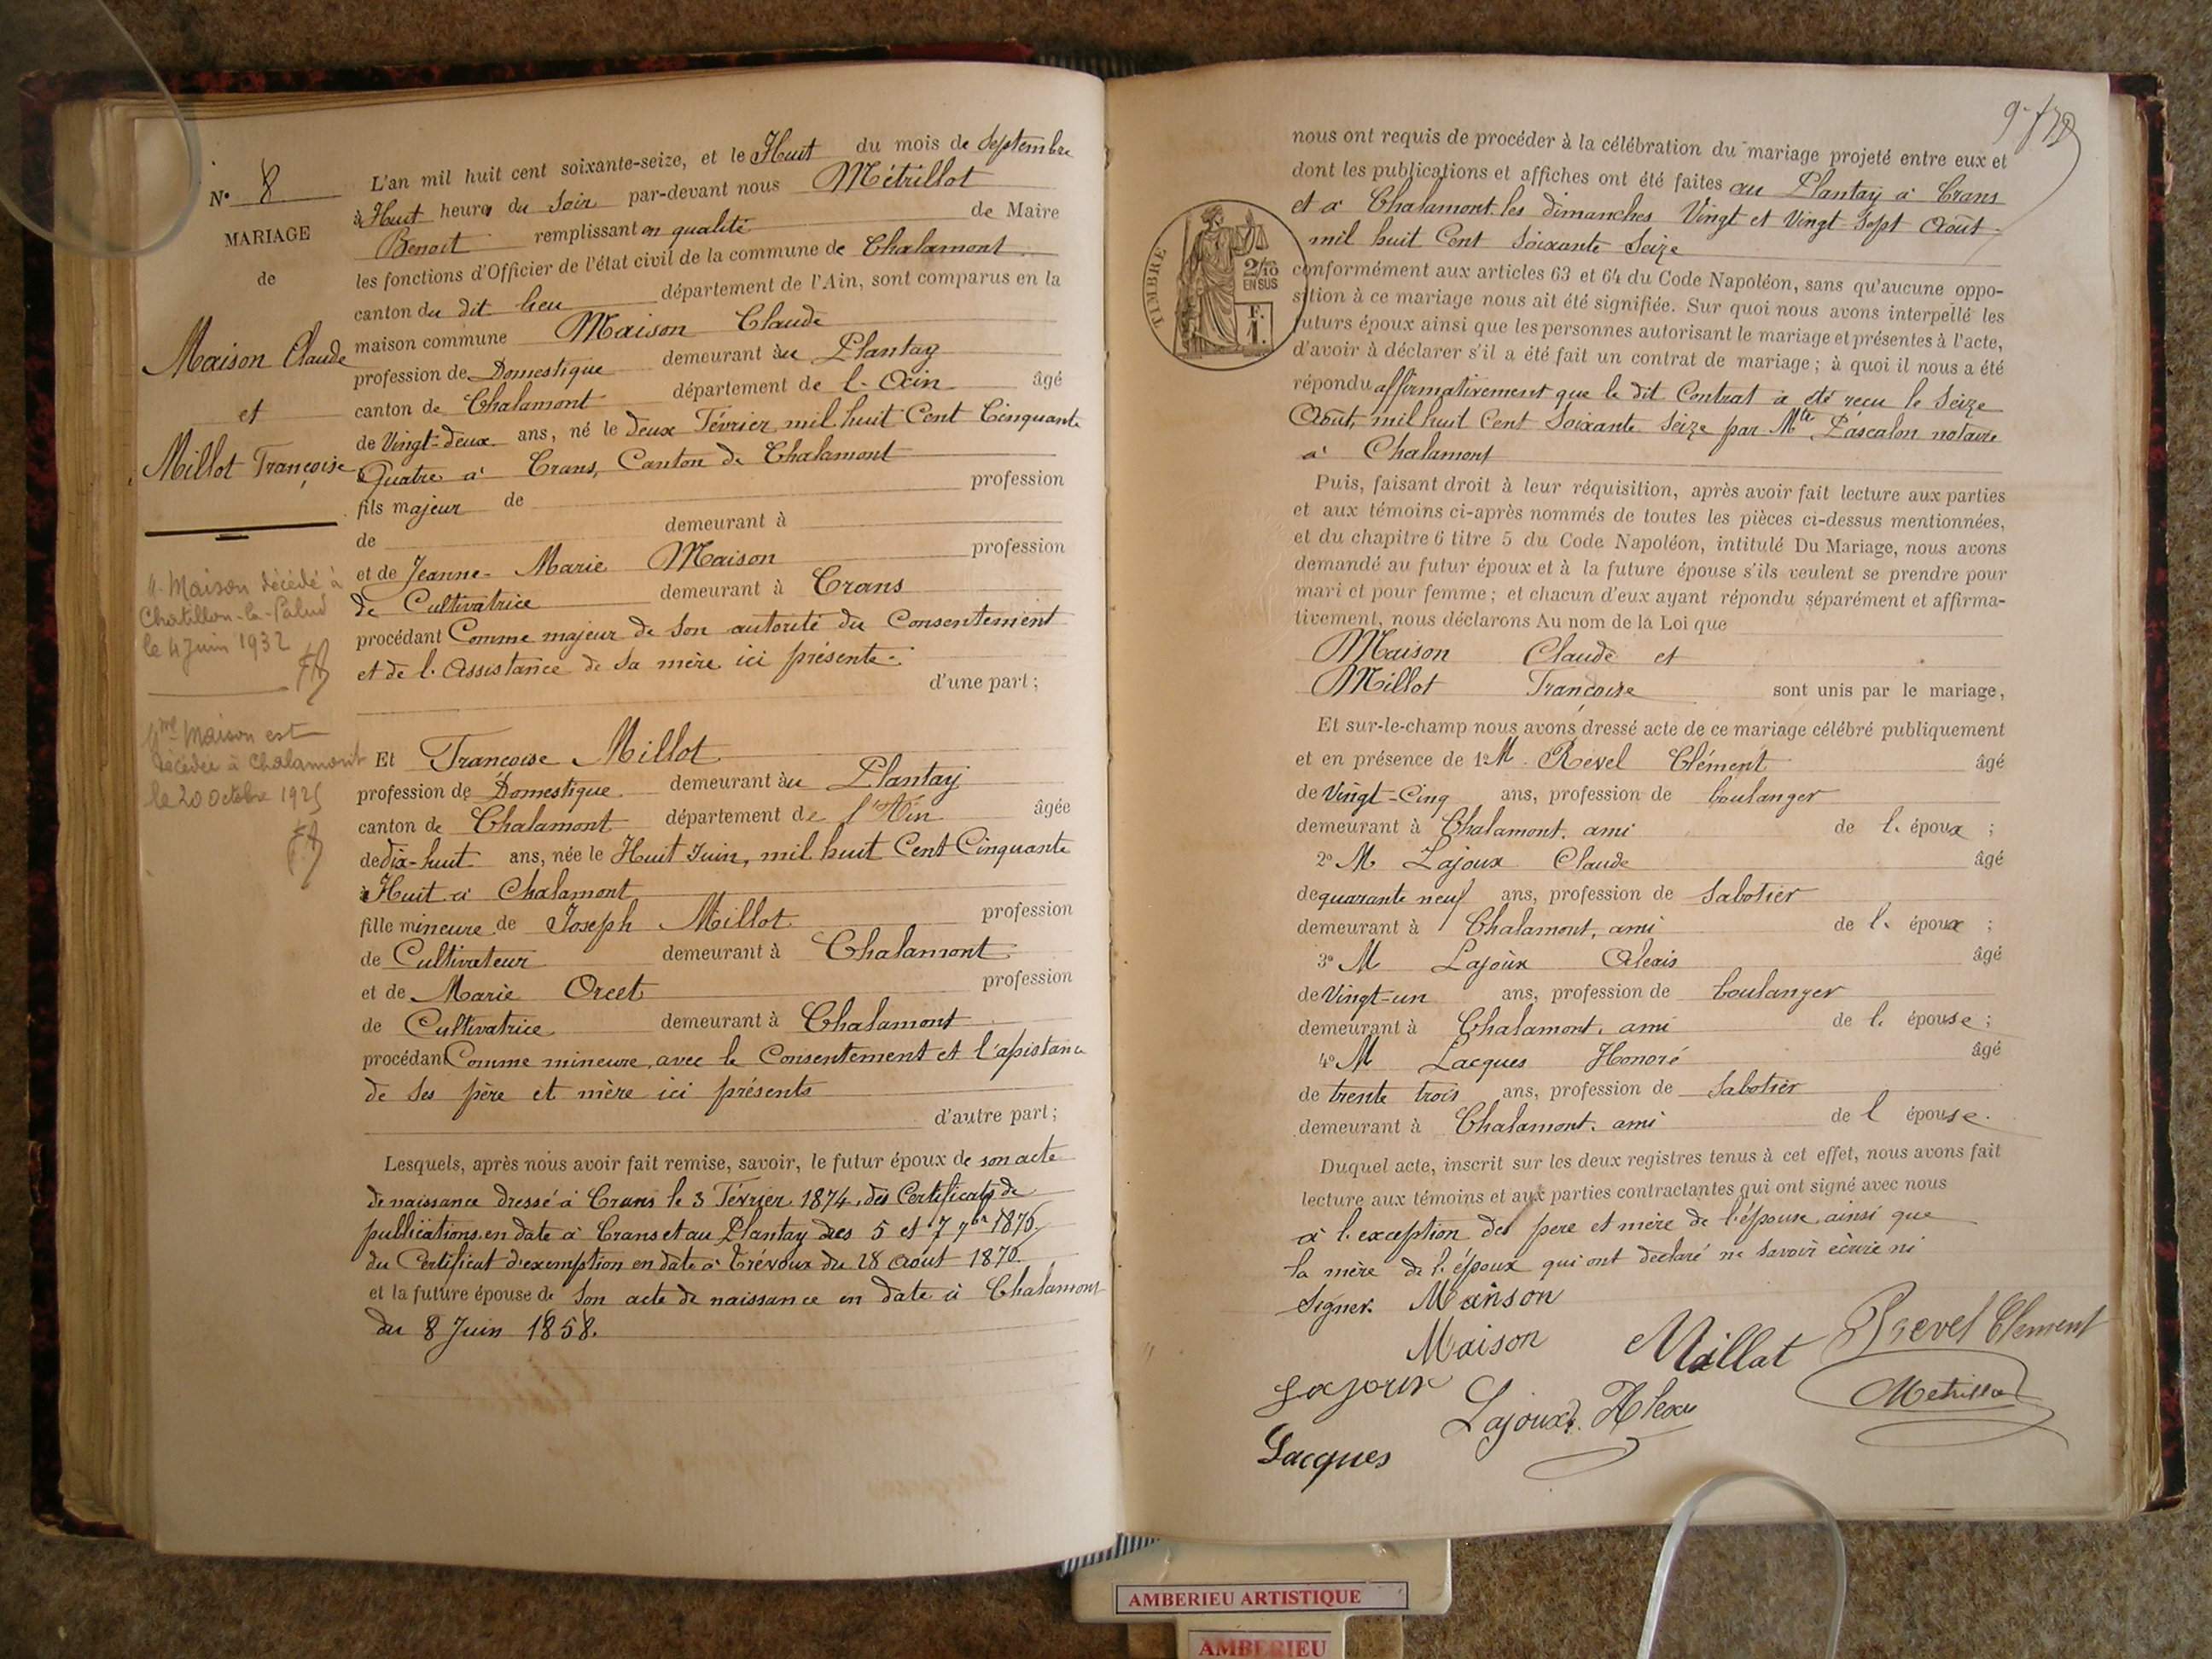 N° 8
MARIAGE
de
Maison Claude
et
Millot Françoise
M. Maison décédé à
Chatillon-la-Palud
le 4 Juin 1932
Mme Maison est
décédée à Chalamont
le 20 Octobre 1925
L'an mil huit cent soixante-seize, et le Huit du mois de Septembre
à Huit heures du Soir par-devant nous Métrillot
Benoit remplissant en qualité de Maire
les fonctions d'Officier de l'état civil de la commune de Chalamont
canton du dit lieu département de l'Ain, sont comparus en la
maison commune Maison Claude
profession de Domestique demeurant au Plantay
canton de Chalamont département de l'Ain âgé
de Vingt-deux ans, né le deux Février mil huit Cent Cinquante
Quatre à Crans, Canton de Chalamont
fils majeur de profession
de demeurant à
et de Jeanne-Marie Maison profession
de Cultivatrice demeurant à Crans
procédant Comme majeur de son autorité du Consentement
et de l'Assistance de sa mère ici présente.
d'une part;
Et Françoise Millot
profession de Domestique demeurant au Plantay
canton de Chalamont département de l'Ain âgée
de dix-huit ans, née le Huit Juin, mil huit Cent Cinquante
Huit à Chalamont
fille mineure de Joseph Millot profession
de Cultivateur demeurant à Chalamont
et de Marie Orcet profession
de Cultivatrice demeurant à Chalamont
procédant Comme mineure, avec le Consentement et l'assistance
de ses père et mère ici présents
d'autre part;
Lesquels, après nous avoir fait remise, savoir, le futur époux de son acte
de naissance dressé à Crans le 3 Février 1874, des Certificats de
publications en date à Crans et au Plantay des 5 et 7 7bre 1876,
du Certificat d'exemption en date à Trévoux du 28 Août 1876
et la future épouse de son acte de naissance en date à Chalamont
du 8 Juin 1858.
TIMBRE
2/10
EN SUS
F.
1.
nous ont requis de procéder à la célébration du mariage projeté entre eux et
dont les publications et affiches ont été faites au Plantay à Crans
et à Chalamont les dimanches Vingt et Vingt-Sept Août
mil huit Cent Soixante Seize
conformément aux articles 63 et 64 du Code Napoléon, sans qu'aucune oppo-
sition à ce mariage nous ait été signifiée. Sur quoi nous avons interpellé les
futurs époux ainsi que les personnes autorisant le mariage et présentes à l'acte,
d'avoir à déclarer s'il a été fait un contrat de mariage; à quoi il nous a été
répondu affirmativement que le dit Contrat a été reçu le Seize
Août, mil huit Cent Soixante Seize par Mtre Pascalon notaire
à Chalamont
Puis, faisant droit à leur réquisition, après avoir fait lecture aux parties
et aux témoins ci-après nommés de toutes les pièces ci-dessus mentionnées,
et du chapitre 6 titre 5 du Code Napoléon, intitulé Du Mariage, nous avons
demandé au futur époux et à la future épouse s'ils veulent se prendre pour
mari et pour femme; et chacun d'eux ayant répondu séparément et affirma-
tivement, nous déclarons Au nom de la Loi que
Maison Claude et
Millot Françoise sont unis par le mariage,
Et sur-le-champ nous avons dressé acte de ce mariage célébré publiquement
et en présence de 1° M. Revel Clément âgé
de Vingt-Cinq ans, profession de boulanger
demeurant à Chalamont, ami de l'époux ;
2° M Lajoux Claude âgé
de quarante neuf ans, profession de Sabotier
demeurant à Chalamont, ami de l'époux ;
3° M Lajoux Alexis âgé
de Vingt-un ans, profession de boulanger
demeurant à Chalamont, ami de l'épouse ;
4° M Lacques Honoré âgé
de trente trois ans, profession de Sabotier
demeurant à Chalamont, ami de l'épouse.
Duquel acte, inscrit sur les deux registres tenus à cet effet, nous avons fait
lecture aux témoins et aux parties contractantes qui ont signé avec nous
à l'exception des père et mère de l'épouse ainsi que
la mère de l'époux qui ont déclaré ne savoir écrire ni
Signer. Mainson
Maison Millat Revel Clement
Lajoux Lajoux Alexis Métrillot
Lacques
AMBERIEU ARTISTIQUE
AMBERIEU